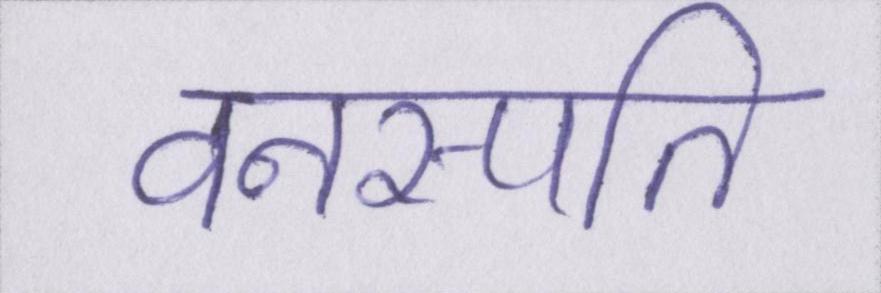 वनस्पति